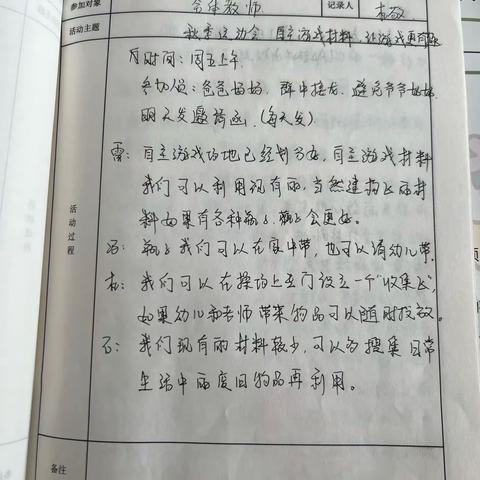 参加对象 全体教师 记录人
活动主题 秋季运动会 自主游戏材料 让游戏更有趣
时间：周五上午
参加人员：爸爸妈妈，群中接龙，避免爷爷奶奶
明天发邀请函。(每天发)
雷：自主游戏场地已经划分好，自主游戏材料
我们可以利用现有的，当然建构区的材
料如果有各种瓶子、罐子会更好。
石：瓶子我们可以在家中带，也可以请幼儿带。
我们可以在操场上专门设立一个“收集区”，
如果幼儿和老师带来物品可以随时投放。
石：我们现有的材料较少，可以多搜集日常
生活中的废旧物品再利用。
活动过程
备注